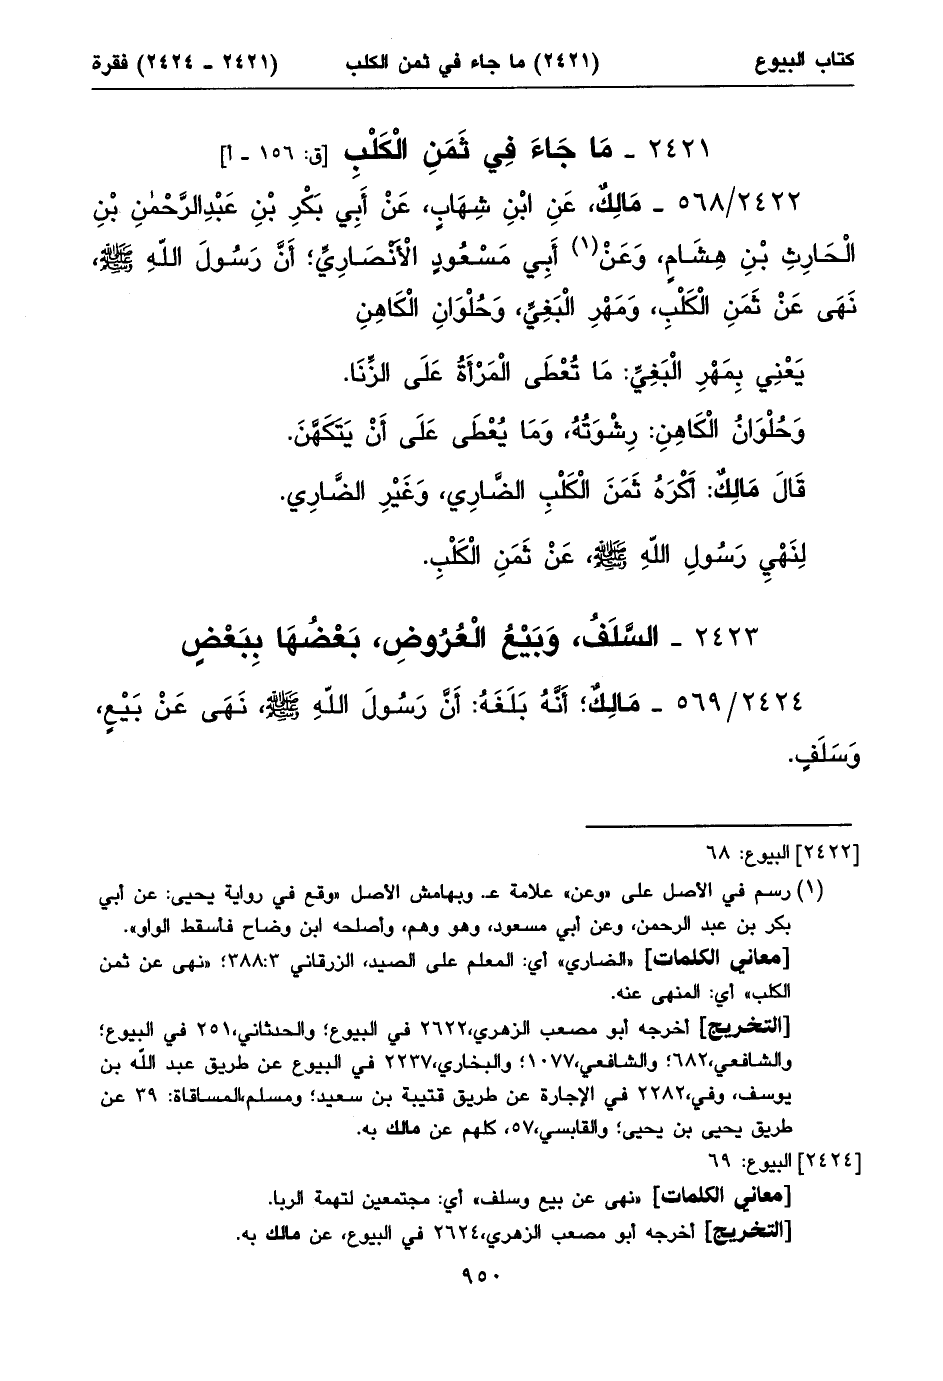 كتاب البيوع (٢٤٢١) ما جاء في ثمن الكلب (٢٤٢١ ـ ٢٤٢٤) فقرة
٢٤٢١ ـ مَا جَاءَ فِي ثَمَنِ الْكَلْبِ [ق: ١٥٦ ـ أ]
٥٦٨/٢٤٢٢ ـ مَالِكٌ، عَنِ ابْنِ شِهَابٍ، عَنْ أَبِي بَكْرِ بْنِ عَبْدِالرَّحْمٰنِ بْنِ
الْحَارِثِ بْنِ هِشَامٍ، وَعَنْ(١) أَبِي مَسْعُودٍ الْأَنْصَارِيِّ؛ أَنَّ رَسُولَ اللّهِ ﷺ،
نَهَى عَنْ ثَمَنِ الْكَلْبِ، وَمَهْرِ الْبَغِيِّ، وَحُلْوَانِ الْكَاهِنِ
يَعْنِي بِمَهْرِ الْبَغِيِّ: مَا تُعْطَى الْمَرْأَةُ عَلَى الزِّنَا.
وَحُلْوَانُ الْكَاهِنِ: رِشْوَتُهُ، وَمَا يُعْطَى عَلَى أَنْ يَتَكَهَّنَ.
قَالَ مَالِكٌ: أَكْرَهُ ثَمَنَ الْكَلْبِ الضَّارِي، وَغَيْرِ الضَّارِي.
لِنَهْيِ رَسُولِ اللّهِ ﷺ، عَنْ ثَمَنِ الْكَلْبِ.
٢٤٢٣ ـ السَّلَفُ، وَبَيْعُ الْعُرُوضِ، بَعْضُهَا بِبَعْضٍ
٥٦٩/٢٤٢٤ ـ مَالِكٌ؛ أَنَّهُ بَلَغَهُ: أَنَّ رَسُولَ اللّهِ ﷺ، نَهَى عَنْ بَيْعٍ،
وَسَلَفٍ.
[٢٤٢٢] البيوع: ٦٨
(١) رسم في الأصل على «وعن» علامة عـ. وبهامش الأصل «وقع في رواية يحيى: عن أبي
بكر بن عبد الرحمن، وعن أبي مسعود، وهو وهم، وأصلحه ابن وضاح فأسقط الواو».
[معاني الكلمات] «الضاري» أي: المعلم على الصيد، الزرقاني ٣٨٨:٣؛ «نهى عن ثمن
الكلب» أي: المنهى عنه.
[التخريج] أخرجه أبو مصعب الزهري،٢٦٢٢ في البيوع؛ والحدثاني،٢٥١ في البيوع؛
والشافعي،٦٨٢؛ والشافعي،١٠٧٧؛ والبخاري،٢٢٣٧ في البيوع عن طريق عبد اللّه بن
يوسف، وفي،٢٢٨٢ في الإجارة عن طريق قتيبة بن سعيد؛ ومسلم،المساقاة: ٣٩ عن
طريق يحيى بن يحيى؛ والقابسي،٥٧، كلهم عن مالك به.
[٢٤٢٤] البيوع: ٦٩
[معاني الكلمات] «نهى عن بيع وسلف» أي: مجتمعين لتهمة الربا.
[التخريج] أخرجه أبو مصعب الزهري،٢٦٢٤ في البيوع، عن مالك به.
٩٥٠